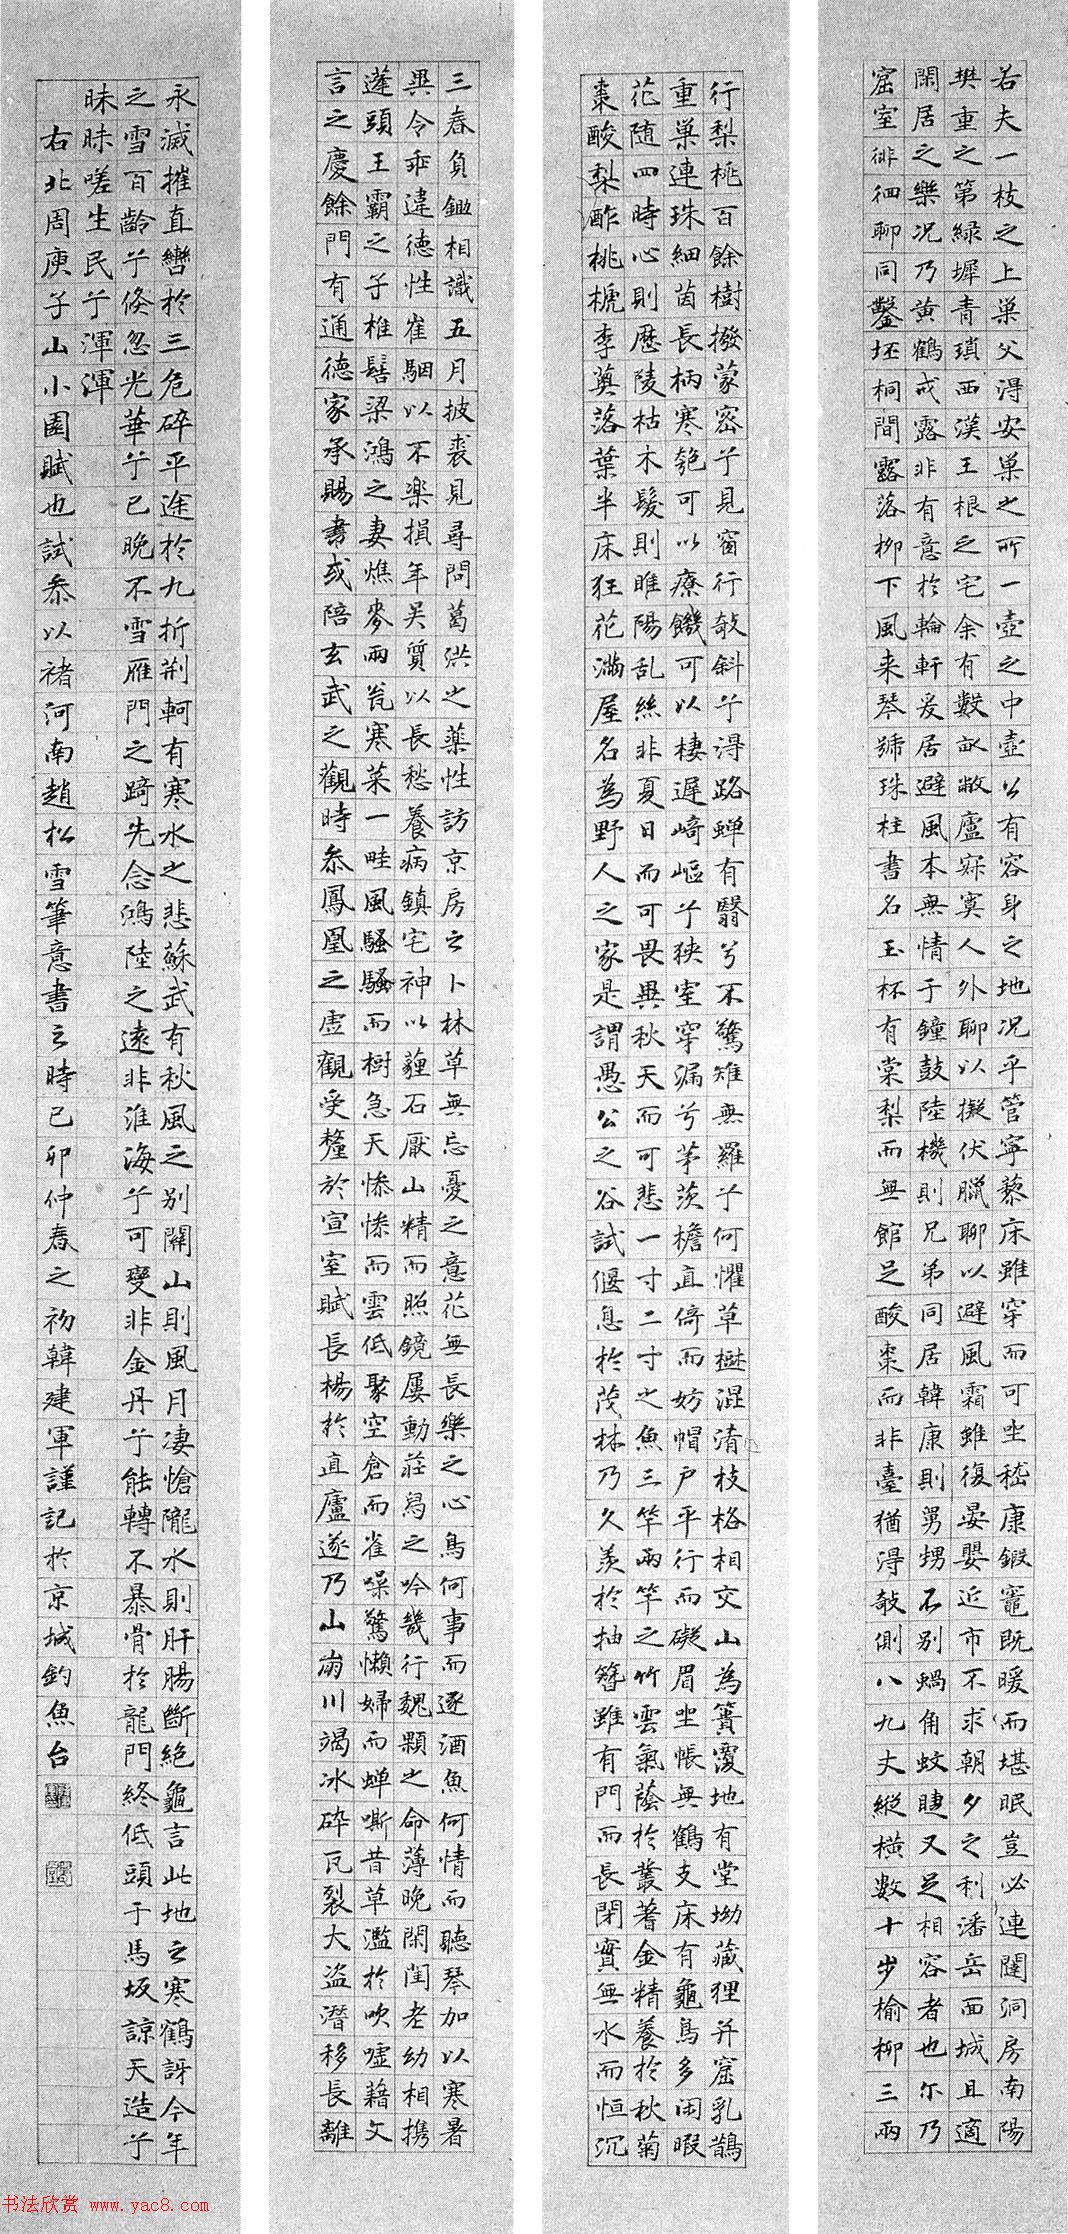 若夫一枝之上巢父得安巢之所一壺之中壺公有容身之地况乎管寧藜床雖穿而可坐嵇康鍛竈既暖而堪眠豈必連闥洞房南陽
樊重之第緑墀青瑣西漢王根之宅余有數畝敝廬寂寞人外聊以擬伏臘聊以避風霜雖復晏嬰近市不求朝夕之利潘岳面城且適
閑居之樂况乃黄鶴戒露非有意於輪軒爰居避風本無情于鐘鼓陸機則兄弟同居韓康則舅甥不别蝸角蚊睫又足相容者也尔乃
窟室徘徊聊同鑿坯桐間露落柳下風来琴號珠柱書名玉杯有棠梨而無館足酸棗而非臺猶得敧側八九丈縱横數十步榆柳三兩
行梨桃百餘樹撥蒙密兮見窗行敧斜兮得路蝉有翳兮不驚雉無羅兮何懼草樹混淆枝格相交山為簣覆地有堂坳藏狸并窟乳鵲
重巢連珠細茵長柄寒匏可以療饑可以棲遲崎嶇兮狹室穿漏兮茅茨檐直倚而妨帽户平行而礙眉坐帳無鶴支床有龜鳥多闲暇
花随四時心則歷陵枯木髮則睢陽乱絲非夏日而可畏異秋天而可悲一寸二寸之魚三竿兩竿之竹雲氣蔭於叢蓍金精養於秋菊
棗酸梨酢桃榹李薁落葉半床狂花滿屋名為野人之家是謂愚公之谷試偃息於茂林乃久羡於抽簪雖有門而長閉實無水而恒沉
三春負鋤相識五月披裘見尋問葛洪之藥性訪京房之卜林草無忘憂之意花無長樂之心鳥何事而逐酒魚何情而聽琴加以寒暑
異令乖違德性崔駰以不樂損年吴質以長愁養病鎮宅神以薶石厭山精而照鏡屢動莊舄之吟幾行魏顆之命薄晚閑闺老幼相携
蓬頭王霸之子椎髻梁鴻之妻燋麥兩瓮寒菜一畦風騷騷而樹急天惨惨而雲低聚空倉而雀噪驚懒婦而蝉嘶昔草濫於吹嘘藉文
言之慶餘門有通德家承賜書或陪玄武之觀時參鳳凰之虚觀受釐於宣室賦長楊於直廬遂乃山崩川竭冰碎瓦裂大盗潜移長離
永滅摧直轡於三危碎平途於九折荆軻有寒水之悲蘇武有秋風之别關山則風月凄愴隴水則肝腸斷絶龜言此地之寒鶴訝今年
之雪百齡兮倏忽光華兮已晚不雪雁門之踦先念鴻陸之遠非淮海兮可變非金丹兮能轉不暴骨於龍門終低頭于馬坂諒天造兮
昧昧嗟生民兮渾渾
右北周庾子山小園賦也試参以褚河南趙松雪筆意書之時己卯仲春之初韓建軍謹記於京城釣魚台
书法欣赏 www.yac8.com